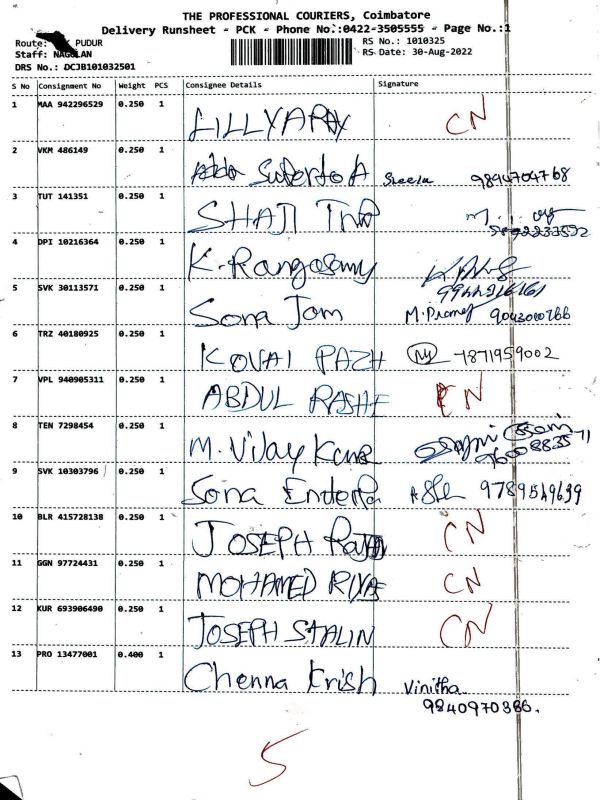 THE PROFESSIONAL COURIERS, Coimbatore
Delivery Runsheet - PCK - Phone No.:0422-3505555 - Page No.:1
Route: PUDUR
RS No.: 1010325
Staff: NAGULAN
RS Date: 30-Aug-2022
DRS No.: DCJB101032501
S No Consignment No Weight PCS Consignee Details Signature
1 MAA 942296529 0.250 1 LILLYARAY CN
2 VKM 486149 0.250 1 Sreela 9894704768
3 TUT 141351 0.250 1 SHAJI
4 DPI 10216364 0.250 1 K. Rangasamy 9944316161
5 SVK 30113571 0.250 1 Sona Jom
6 TRZ 40180925 0.250 1 KOVAI PAZH 7871959002
7 VPL 940905311 0.250 1 ABDUL RASHE CN
8 TEN 7298454 0.250 1 M. Vijay Kuma
9 SVK 10303796 0.250 1 Sona Enterpr 9789549699
10 BLR 415728138 0.250 1 JOSEPH CN
11 GGN 97724431 0.250 1 MOHAMED RIYAE CN
12 KUR 693906490 0.250 1 JOSEPH STALIN CN
13 PRO 13477001 0.400 1 Chenna Krish Vinitha
9840970386.
5